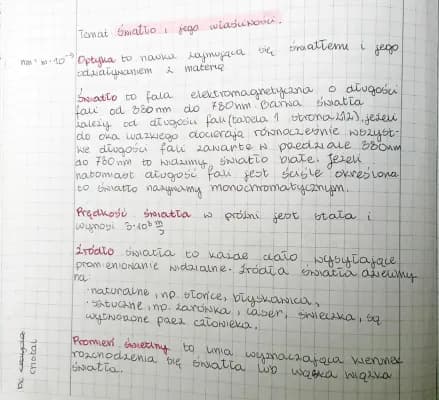 Temat Światło i jego własności.
nm = m·10⁻⁹ Optyka to nauka zajmująca się światłem i jego
oddziaływaniem z materią
Światło to fala elektromagnetyczna o długości
fali od 380 nm do 780 nm. Barwa światła
zależy od długości fali (tabela 1 strona 212), jeżeli
do oka ludzkiego docierają równocześnie wszyst-
kie długości fali zawarte w przedziale 380nm
do 780 nm to widzimy światło białe. Jeżeli
natomiast długość fali jest ściśle określona
to światło nazywamy monochromatycznym.
Prędkość światła w próżni jest stała i
wynosi 3·10⁸ m/s
Źródło światła to każde ciało, wysyłające
promieniowanie widzialne. Źródła światła dzielimy
na:
· naturalne, np. słońce, błyskawica,
· sztuczne, np. żarówka, laser, świeczka, są
wytworzone przez człowieka.
Promień świetlny to linia wyznaczająca kierunek
rozchodzenia się światła lub wąska wiązka
światła.